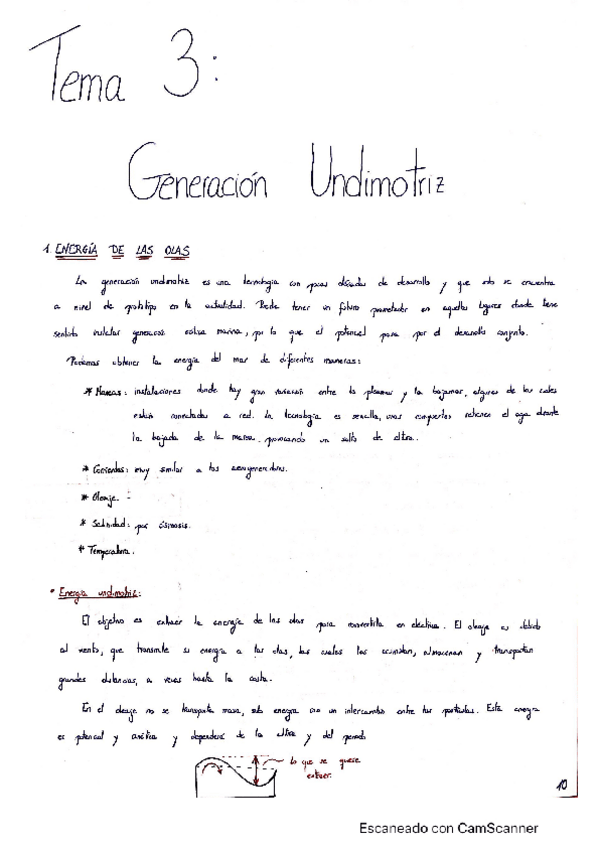 Tema 3:
Generación Undimotriz
1. ENERGÍA DE LAS OLAS
La generación undimotriz es una tecnología con pocas décadas de desarrollo y que solo se encuentra
a nivel de prototipo en la actualidad. Puede tener un futuro prometedor en aquellos lugares donde tiene
sentido instalar generación eólica marina, por lo que el potencial pasa por el desarrollo conjunto.
Podemos obtener la energía del mar de diferentes maneras:
* Mareas: instalaciones donde hay gran variación entre la pleamar y la bajamar, algunas de las cuales
están conectadas a red. La tecnología es sencilla, unas compuertas retienen el agua durante
la bajada de la marea, provocando un salto de altura.
* Corrientes: muy similar a los aerogeneradores.
* Oleaje.
* Salinidad: por ósmosis.
* Temperatura.
• Energía undimotriz:
El objetivo es extraer la energía de las olas para convertirla en eléctrica. El oleaje es debido
al viento, que transmite su energía a las olas, las cuales las acumulan, almacenan y transportan
grandes distancias, a veces hasta la costa.
En el oleaje no se transporta masa, solo energía con un intercambio entre las partículas. Esta energía
es potencial y cinética y dependerá de la altura y del periodo
lo que se quiere
extraer.
10
Escaneado con CamScanner